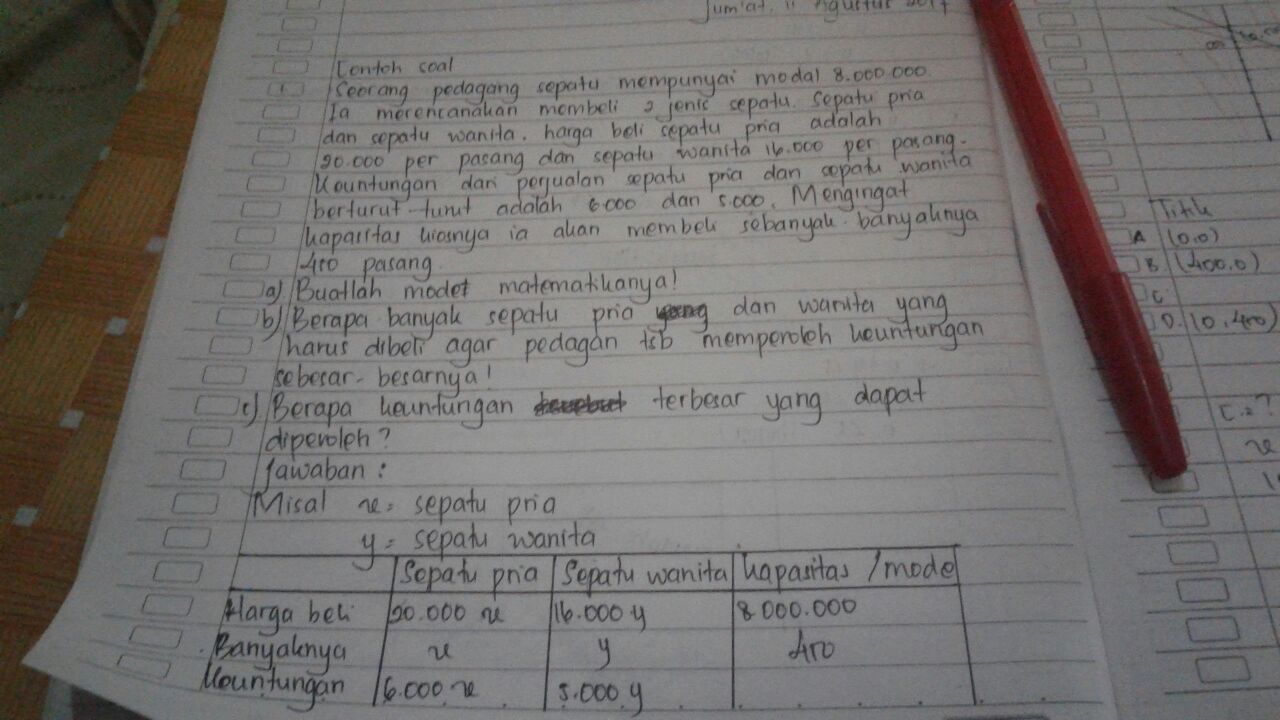 Jum'at, 11 Agustus 2017
Contoh soal
1. Seorang pedagang sepatu mempunyai modal 8.000.000.
Ia merencanakan membeli 2 jenis sepatu. Sepatu pria
dan sepatu wanita. harga beli sepatu pria adalah
20.000 per pasang dan sepatu wanita 16.000 per pasang.
Keuntungan dari perjualan sepatu pria dan sepatu wanita
berturut-turut adalah 6.000 dan 5.000. Mengingat
kapasitas kiosnya ia akan membeli sebanyak-banyaknya
450 pasang.
a) Buatlah model matematikanya!
b) Berapa banyak sepatu pria dan wanita yang
harus dibeli agar pedagan tsb memperoleh keuntungan
sebesar-besarnya!
c) Berapa keuntungan terbesar yang dapat
diperoleh?
Jawaban :
Misal x = sepatu pria
y = sepatu wanita
Sepatu pria Sepatu wanita kapasitas /mode
Harga beli 20.000 x 16.000 y 8.000.000
Banyaknya x y 450
Keuntungan 6.000 x 5.000 y
Titik
A (0,0)
B. (400,0)
C
D. (0,450)
C.=?
x